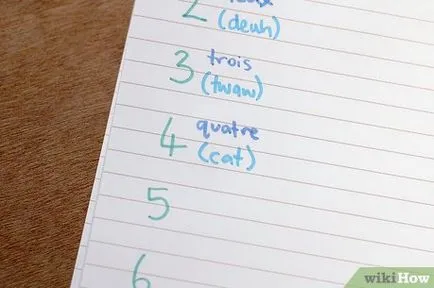 2
(deuh)
3 trois
(twaw)
4 quatre
(cat)
5
6
wikiHow